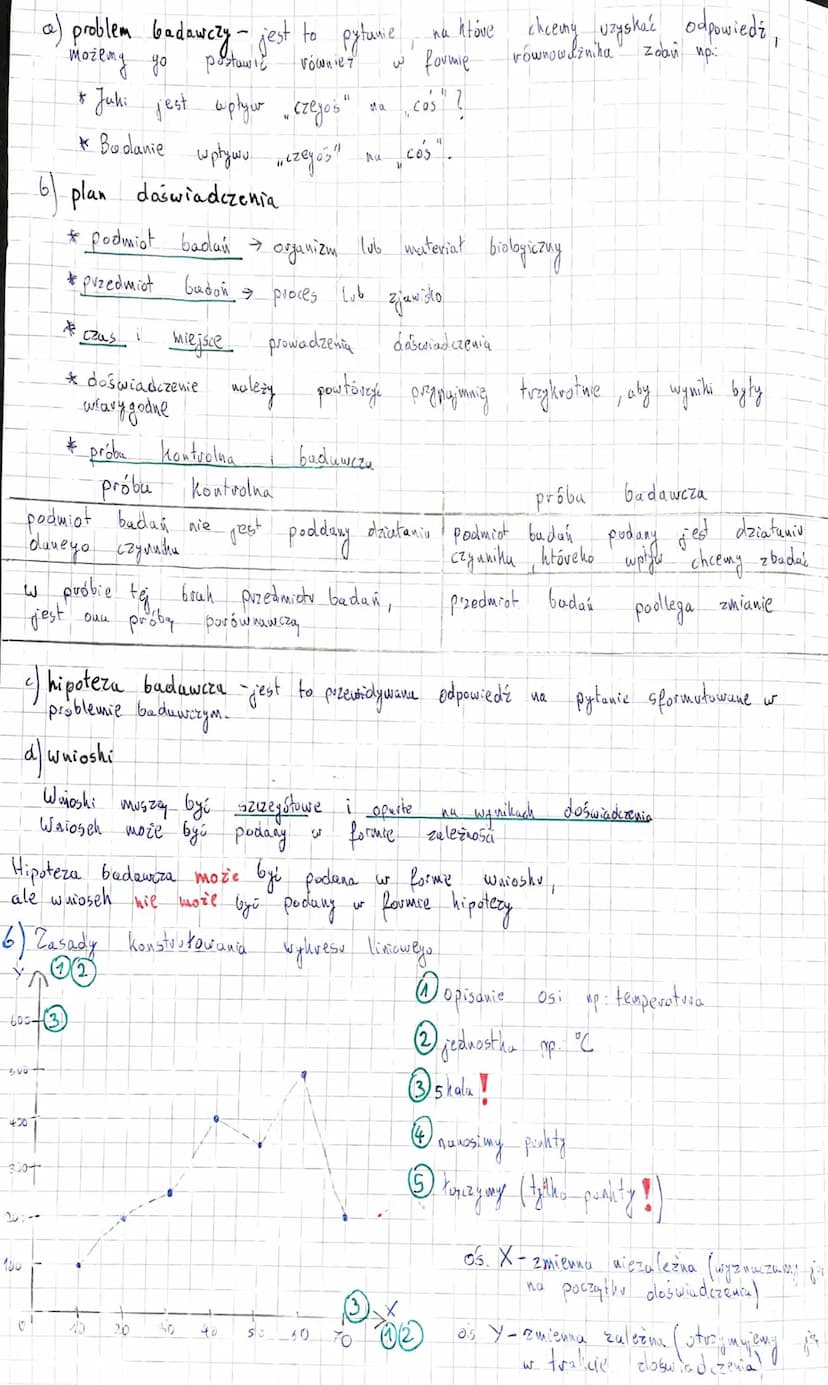 a) problem badawczy - jest to pytanie, na które chcemy uzyskać odpowiedź,
możemy go postawić również w formie równoważnika zdań np:
* Jaki jest wpływ "czegoś" na "coś"?
* Badanie wpływu "czegoś" na "coś".
b) plan doświadczenia
* podmiot badań → organizm lub materiał biologiczny
* przedmiot badań → proces lub zjawisko
* czas i miejsce prowadzenia doświadczenia
* doświadczenie należy powtórzyć przynajmniej trzykrotnie, aby wyniki były
wiarygodne
* próba kontrolna i badawcza
próba kontrolna próba badawcza
podmiot badań nie jest poddany działaniu podmiot badań podany jest działaniu
danego czynnika czynnika, którego wpływ chcemy zbadać
w próbie tej brak przedmiotu badań, przedmiot badań podlega zmianie
jest ona próbą porównawczą
c) hipoteza badawcza - jest to przewidywana odpowiedź na pytanie sformułowane w
problemie badawczym.
d) wnioski
Wnioski muszą być szczegółowe i oparte na wynikach doświadczenia
Wniosek może być podany w formie zależności
Hipoteza badawcza może być podana w formie wniosku,
ale wniosek nie może być podany w formie hipotezy
6) Zasady konstruowania wykresu liniowego
Y ① ②
① opisanie osi np: temperatura
600 ③
② jednostka np. °C
500
③ skala!
400
④ nanosimy punkty
300
⑤ łączymy (tylko punkty!)
20
100
oś X - zmienna niezależna (wyznaczamy ją
na początku doświadczenia)
③ X
0 10 20 30 40 50 60 70 ① ②
oś Y - zmienna zależna (otrzymujemy ją
w trakcie doświadczenia)